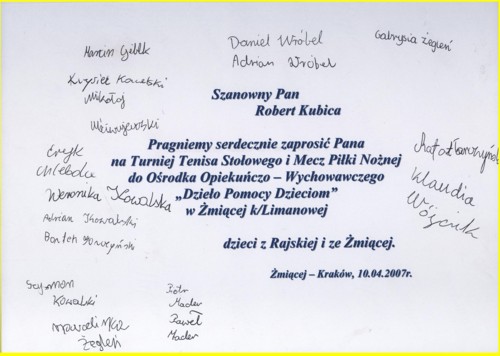 Marcin
Daniel Wróbel
Adrian Wróbel
Krzysiek
Mikołaj
Szanowny Pan
Robert Kubica
Pragniemy serdecznie zaprosić Pana
na Turniej Tenisa Stołowego i Mecz Piłki Nożnej
do Ośrodka Opiekuńczo – Wychowawczego
„Dzieło Pomocy Dzieciom”
w Żmiącej k/Limanowej
Eryk
Weronika Kowalska
Adrian Kowalski
Klaudia
Wójcik
dzieci z Rajskiej i ze Żmiącej.
Żmiącej – Kraków, 10.04.2007r.
Szymon
Kowalski
Piotr
Mader
Paweł
Mader